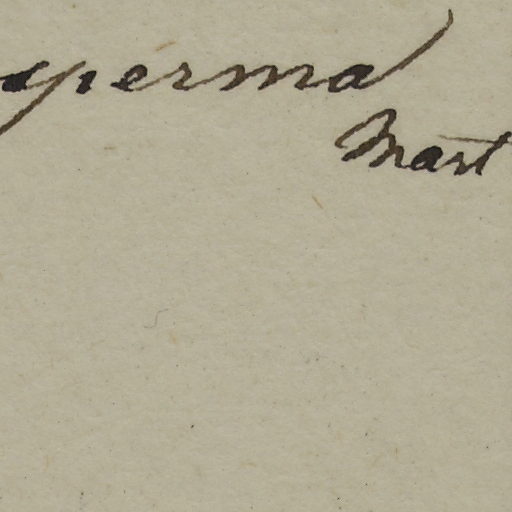 sperma
Mart